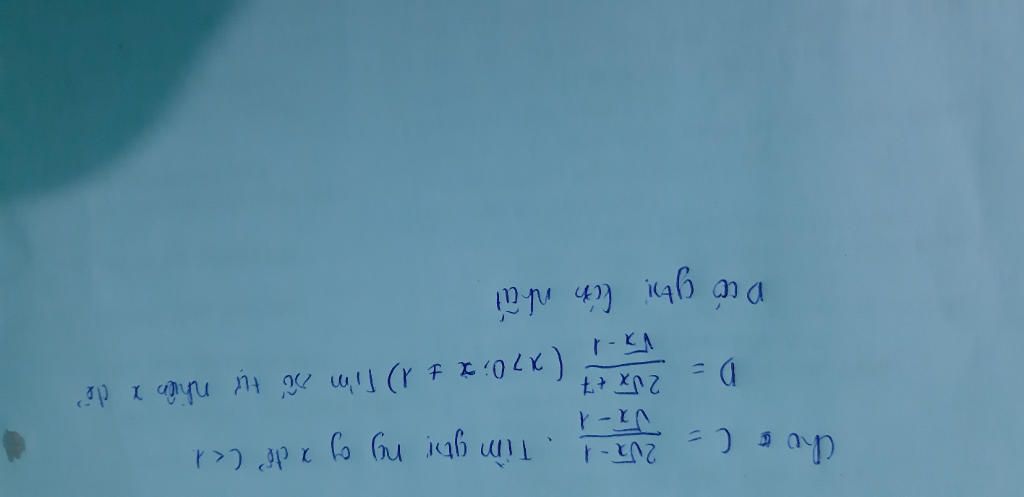 Cho C = (2√x - 1)/(√x - 1). Tìm gtrị ng của x để C < 1
D = (2√x + 7)/(√x - 1) (x > 0; x ≠ 1) Tìm số tự nhiên x để
D có gtrị lớn nhất